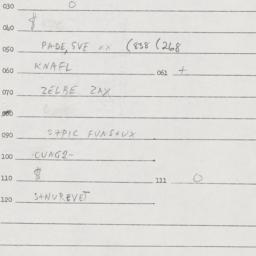 030 0
040 $
050 PADE, SVE xx (838 (268
060 KNAFL 061 +
070 ZELBE ZAX
080
090 S+PIC FUNS+UX
100 CUAG2-
110 $ 111 0
120 S+NUREVET